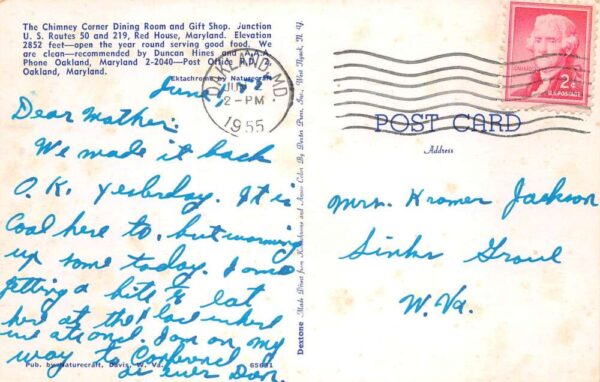 The Chimney Corner Dining Room and Gift Shop. Junction
U. S. Routes 50 and 219, Red House, Maryland. Elevation
2852 feet—open the year round serving good food. We
are clean—recommended by Duncan Hines and A.A.A.
Phone Oakland, Maryland 2-2040—Post Office R.D. 2,
Oakland, Maryland.
Ektachrome by Naturecraft
OAKLAND, MD.
2-PM
1955
2¢
U.S. POSTAGE
June
Dear Mother:
We made it back
O.K. yesterday. It is
Cool here to, but warming
up some today. I am
getting a bite to eat
here at the place where
we ate once. I am on my
way to
Dan.
Pub. by Naturecraft, Davis, W. Va.
65631
Dextone
Made Direct from Kodachrome and Ansco Color By Dexter Press, Inc., West Nyack, N. Y.
POST CARD
Address
Mrs. Kramer Jackson
Sinks Grove
W. Va.